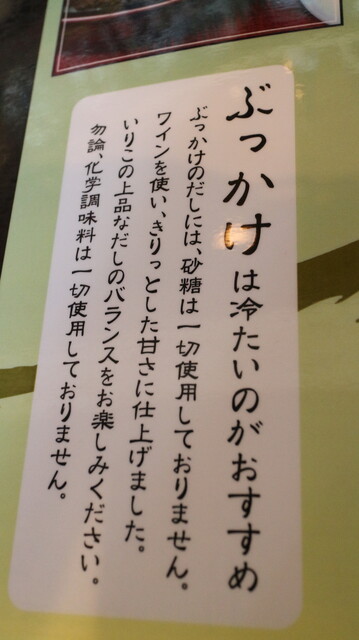 ぶっかけは冷たいのがおすすめ
ぶっかけのだしには、砂糖は一切使用しておりません。
ワインを使い、きりっとした甘さに仕上げました。
いりこの上品なだしのバランスをお楽しみください。
勿論、化学調味料は一切使用しておりません。